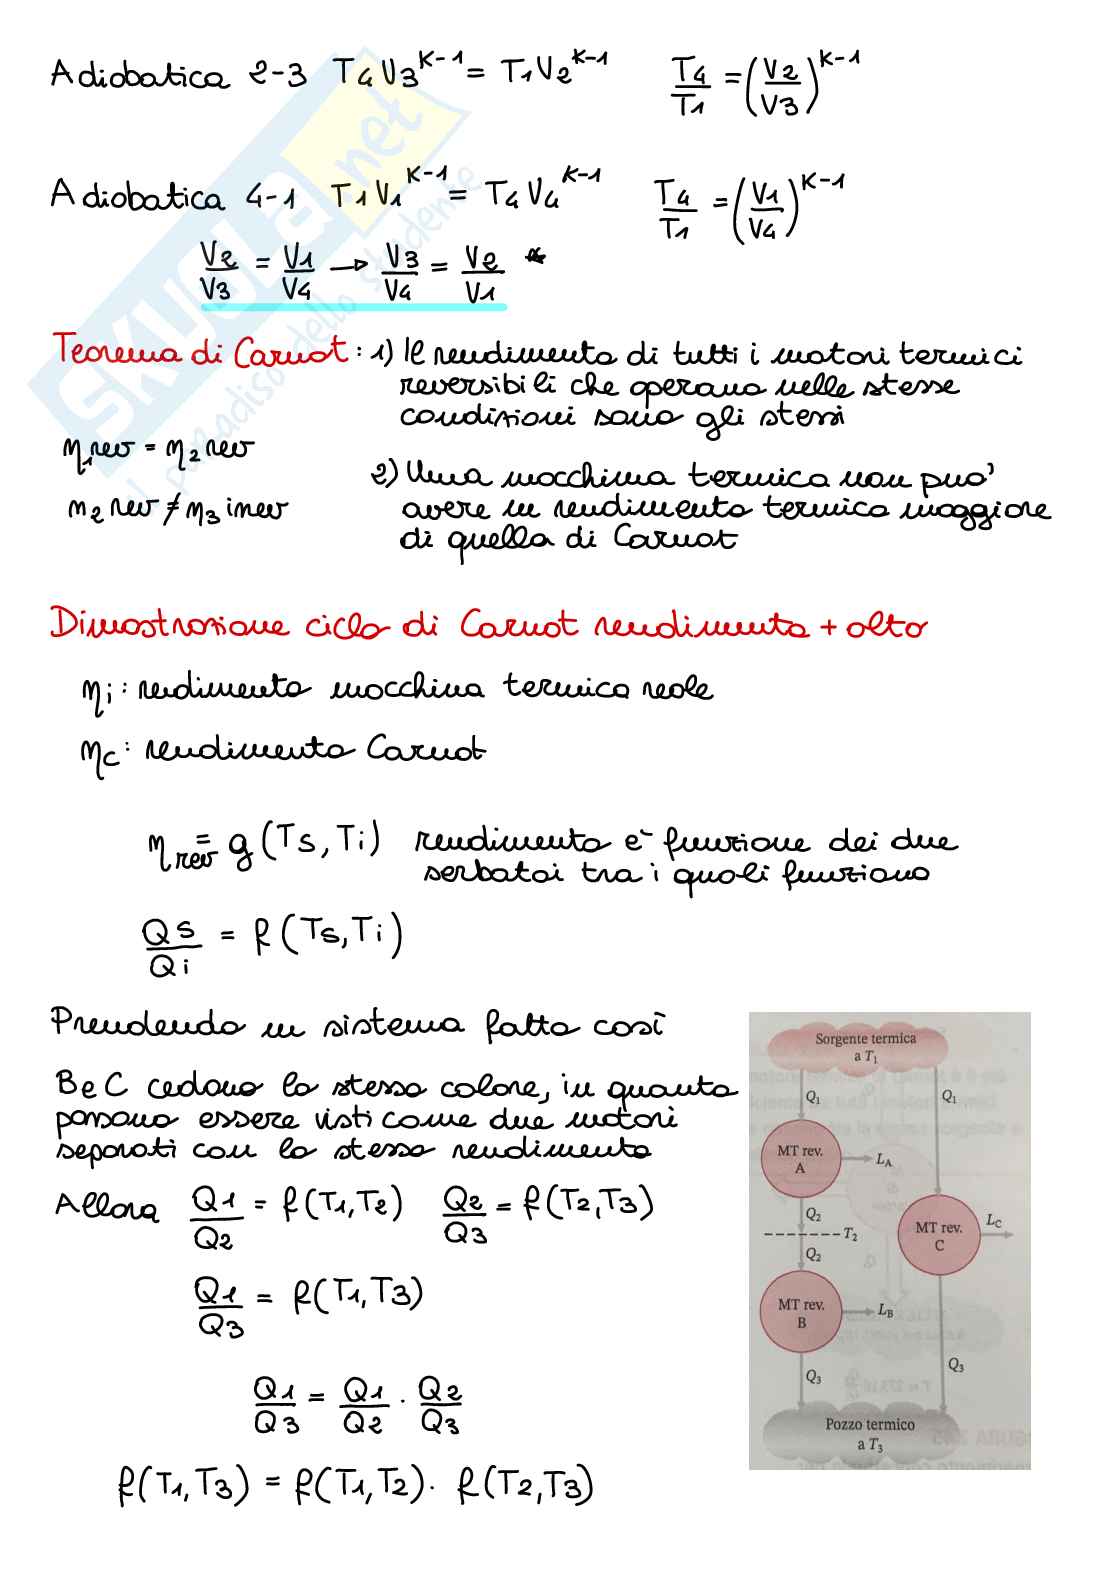 Adiabatica 2-3 T4V3^K-1 = T1V2^K-1 T4/T1 = (V2/V3)^K-1
Adiabatica 4-1 T1V1^K-1 = T4V4^K-1 T4/T1 = (V1/V4)^K-1
V2/V3 = V1/V4 → V3/V4 = V2/V1 *
Teorema di Carnot : 1) Il rendimento di tutti i motori termici
reversibili che operano nelle stesse
condizioni sono gli stessi
η1rev = η2rev
2) Una macchina termica non puo'
η2rev ≠ η3irrev
avere un rendimento termico maggiore
di quella di Carnot
Dimostrazione ciclo di Carnot rendimento + alto
ηi : rendimento macchina termica reale
ηc : rendimento Carnot
ηrev = g(Ts, Ti) rendimento e` funzione dei due
serbatoi tra i quali funziona
Qs/Qi = f(Ts, Ti)
Prendendo un sistema fatto così
B e C cedono lo stesso calore, in quanto
possono essere visti come due motori
separati con lo stesso rendimento
Allora Q1/Q2 = f(T1, T2) Q2/Q3 = f(T2, T3)
Q1/Q3 = f(T1, T3)
Q1/Q3 = Q1/Q2 · Q2/Q3
f(T1, T3) = f(T1, T2) · f(T2, T3)
Sorgente termica
a T1
Q1 Q1
MT rev.
A
LA
Q2
T2
Q2
MT rev.
C
LC
MT rev.
B
LB
Q3
Q3
Pozzo termico
a T3
SKUOLA.net
il paradiso dello studente